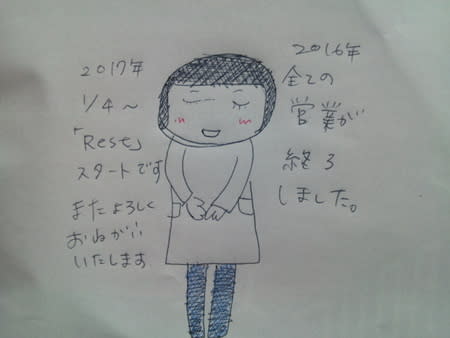 2016年
全ての
営業が
終了
しました。
2017年
1/4~
「Rest」
スタートです
またよろしく
おねがい
いたします